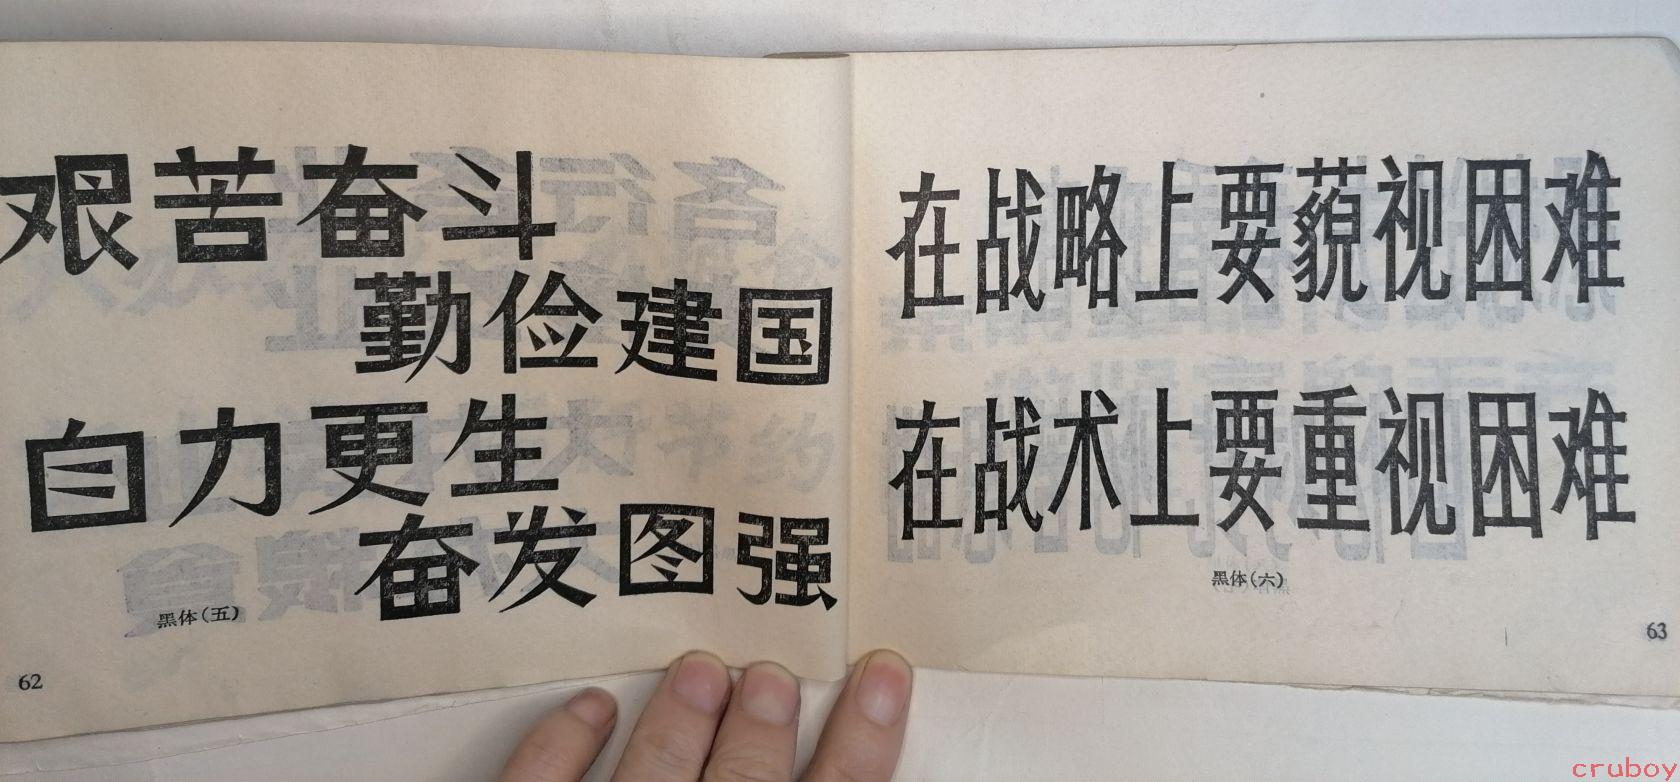 艰苦奋斗
勤俭建国
自力更生
奋发图强
黑体(五)
62
在战略上要藐视困难
在战术上要重视困难
黑体(六)
63
cruboy